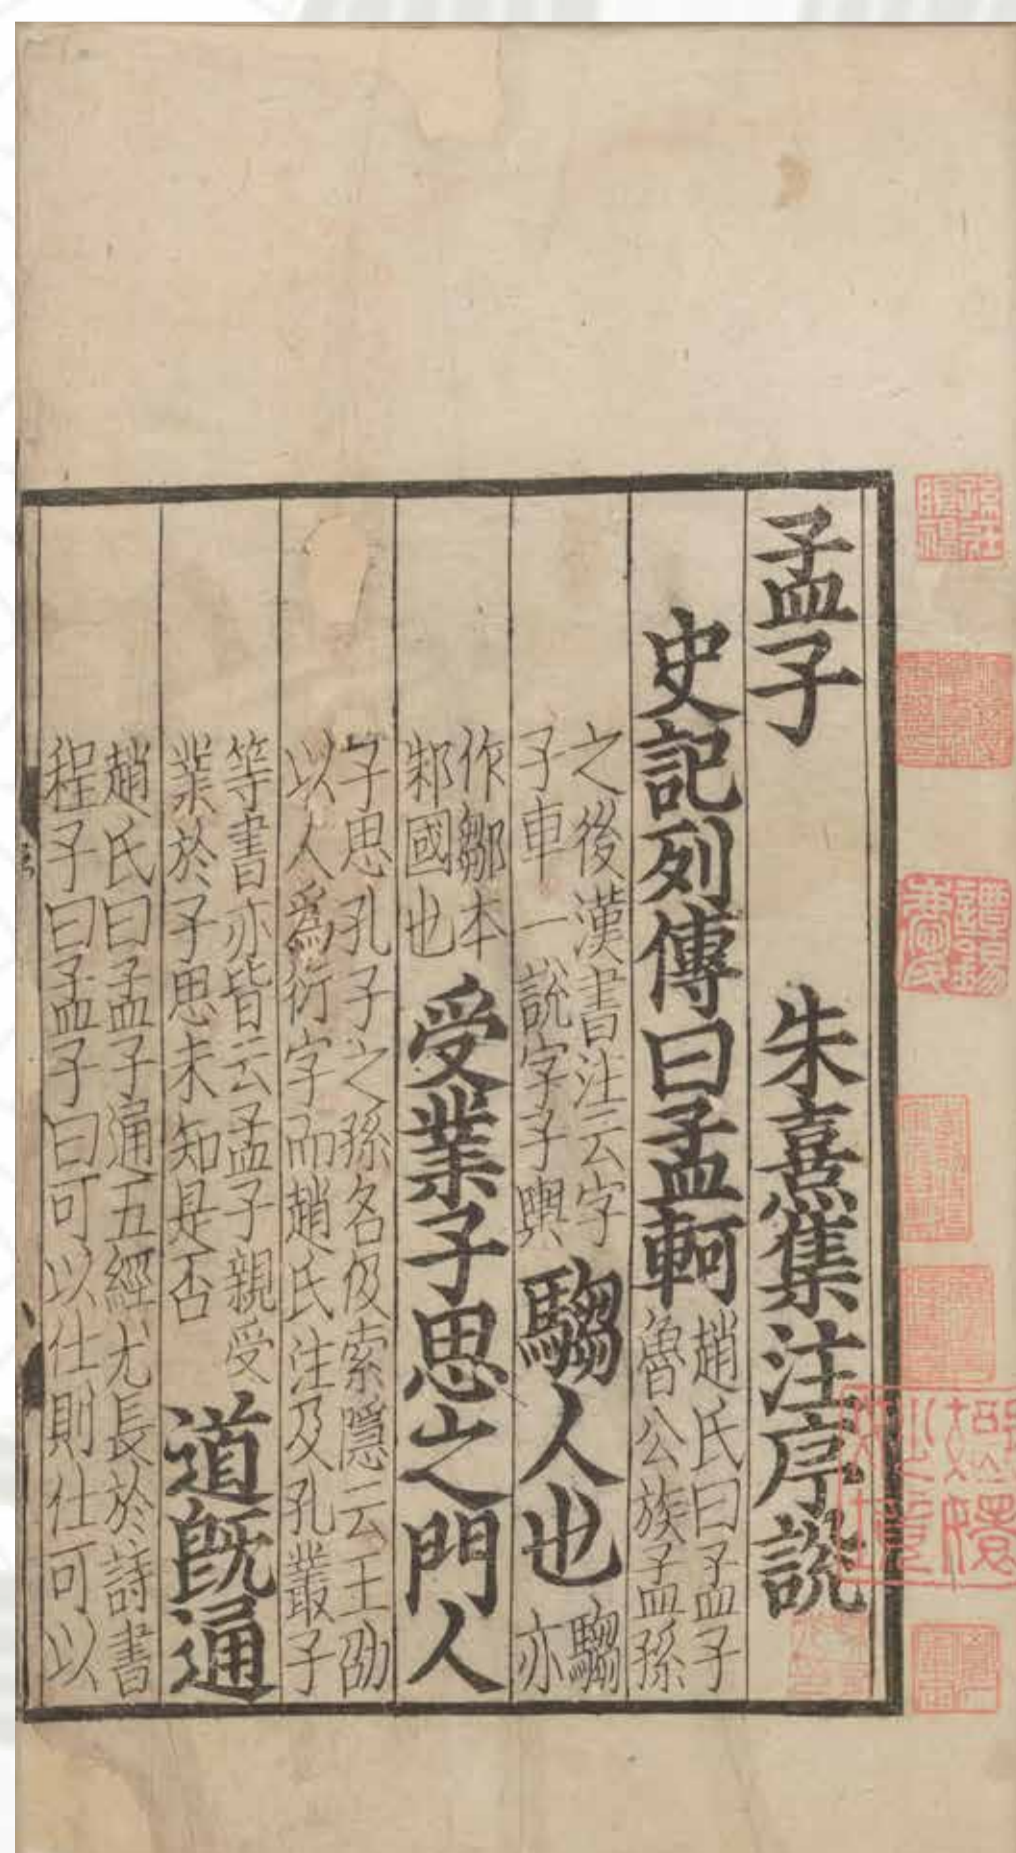 孟子 朱熹集注序說
史記列傳曰孟軻
趙氏曰孟子
魯公族孟孫
之後漢書注云字
子車一說字子輿
騶人也
騶
亦
作鄒本
邾國也
受業子思之門人
子思孔子之孫名伋索隱云王劭
以人爲衍字而趙氏注及孔叢子
等書亦皆云孟子親受
業於子思未知是否
道既通
趙氏曰孟子通五經尤長於詩書
程子曰孟子曰可以仕則仕可以